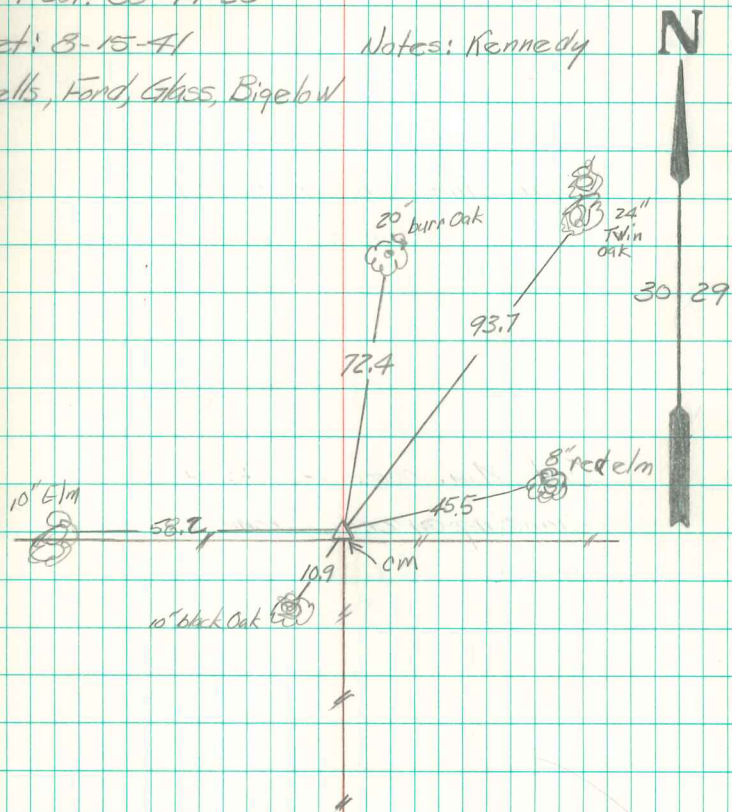 8-15-41
Notes: Kennedy
N
Ford, Glass, Bigelow
20" burr Oak
24"
Twin
Oak
30 29
93.7
72.4
8" red elm
10" Elm
45.5
58.2
CM
10.9
10" black Oak